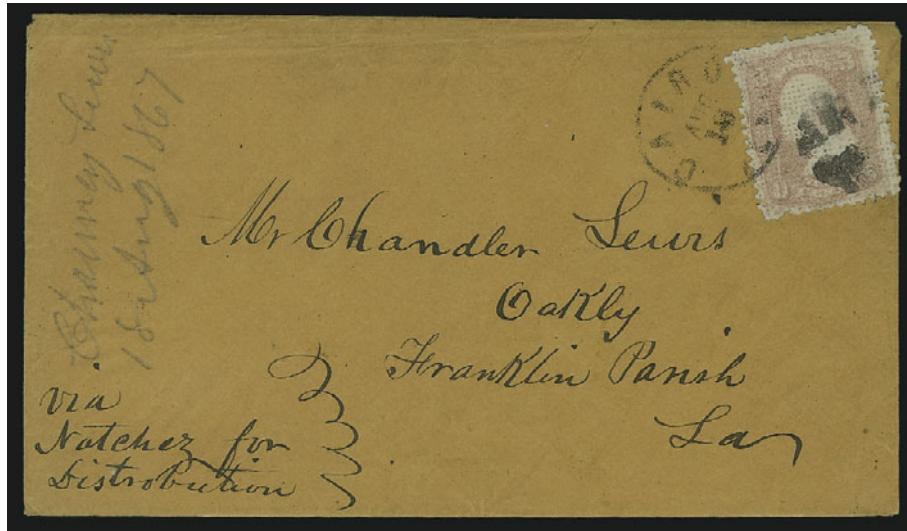 Chauncey Lewis
18 Aug 1867
CAIRO
AUG
18
Mr Chandler Lewis
Oakly
Franklin Parish
La
via
Natchez for
Distrobution